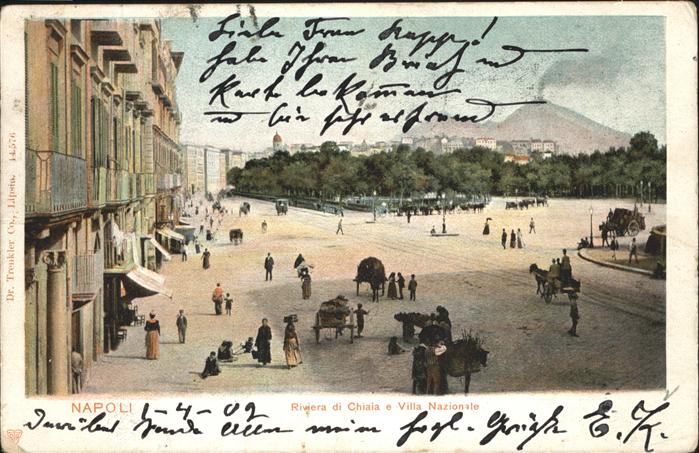 Liebe Frau Kapp!
habe Ihren Brief u
Karte bekommen
u bin sehr erfreut
Dr. Trenkler Co., Lipsia. 14576
NAPOLI 1-4-02
Riviera di Chiaia e Villa Nazionale
darüber Sende Allen meine hzgl. Grüße E. K.